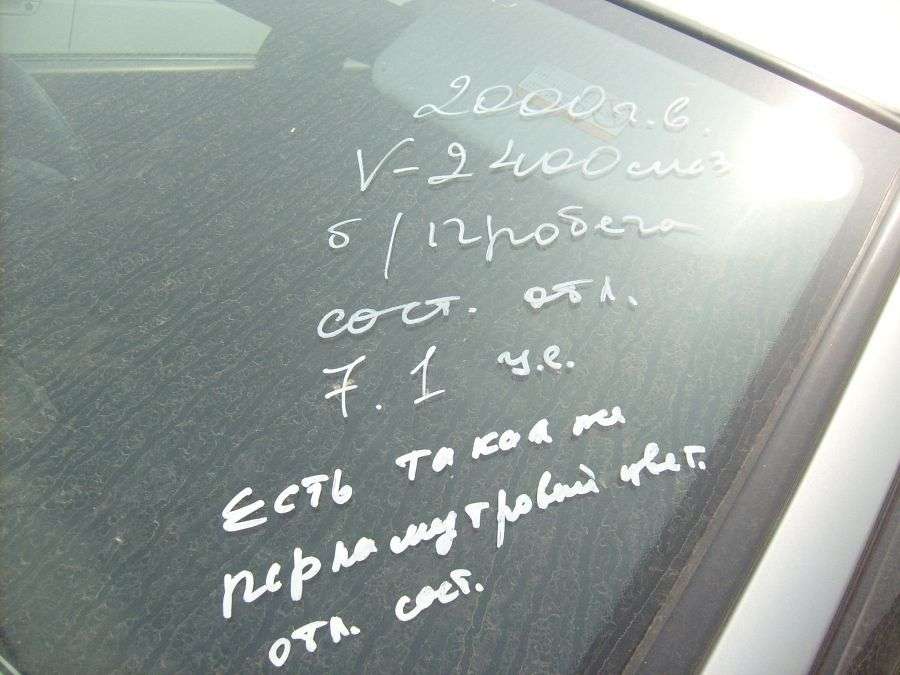 2000г.в.
V-2400 см3
б/пробега
сост. отл.
7.1 у.е.
Есть такая же
перламутровый цвет.
отл. сост.